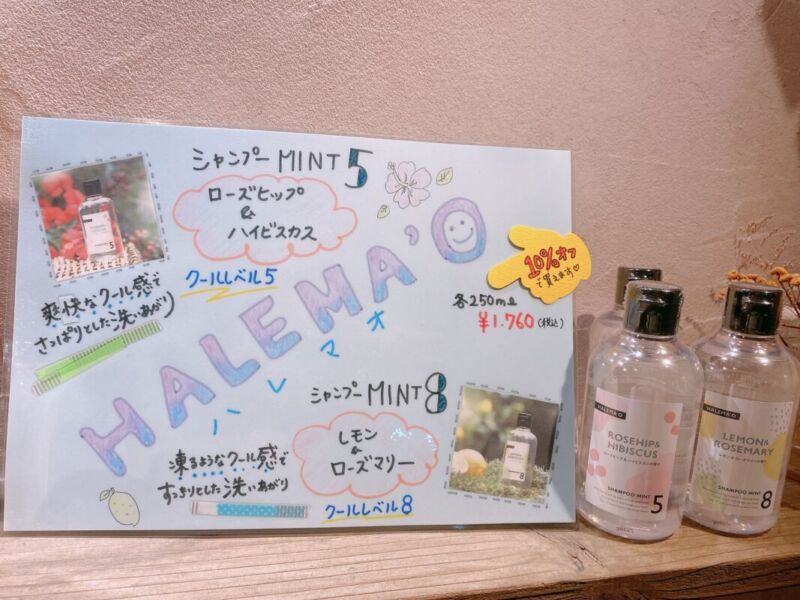 シャンプー MINT 5
ローズヒップ
&
ハイビスカス
クールレベル5
爽快なクール感で
さっぱりとした洗いあがり
HALEMA'O
ハレマオ
10%オフ
で買えます♡
各250mℓ
¥1.760(税込)
シャンプー MINT 8
レモン
&
ローズマリー
凍るようなクール感で
すっきりとした洗いあがり
クールレベル8
5
8
HALEMA'O
ROSEHIP&
HIBISCUS
SHAMPOO MINT
5
HALEMA'O
LEMON&
ROSEMARY
SHAMPOO MINT
8